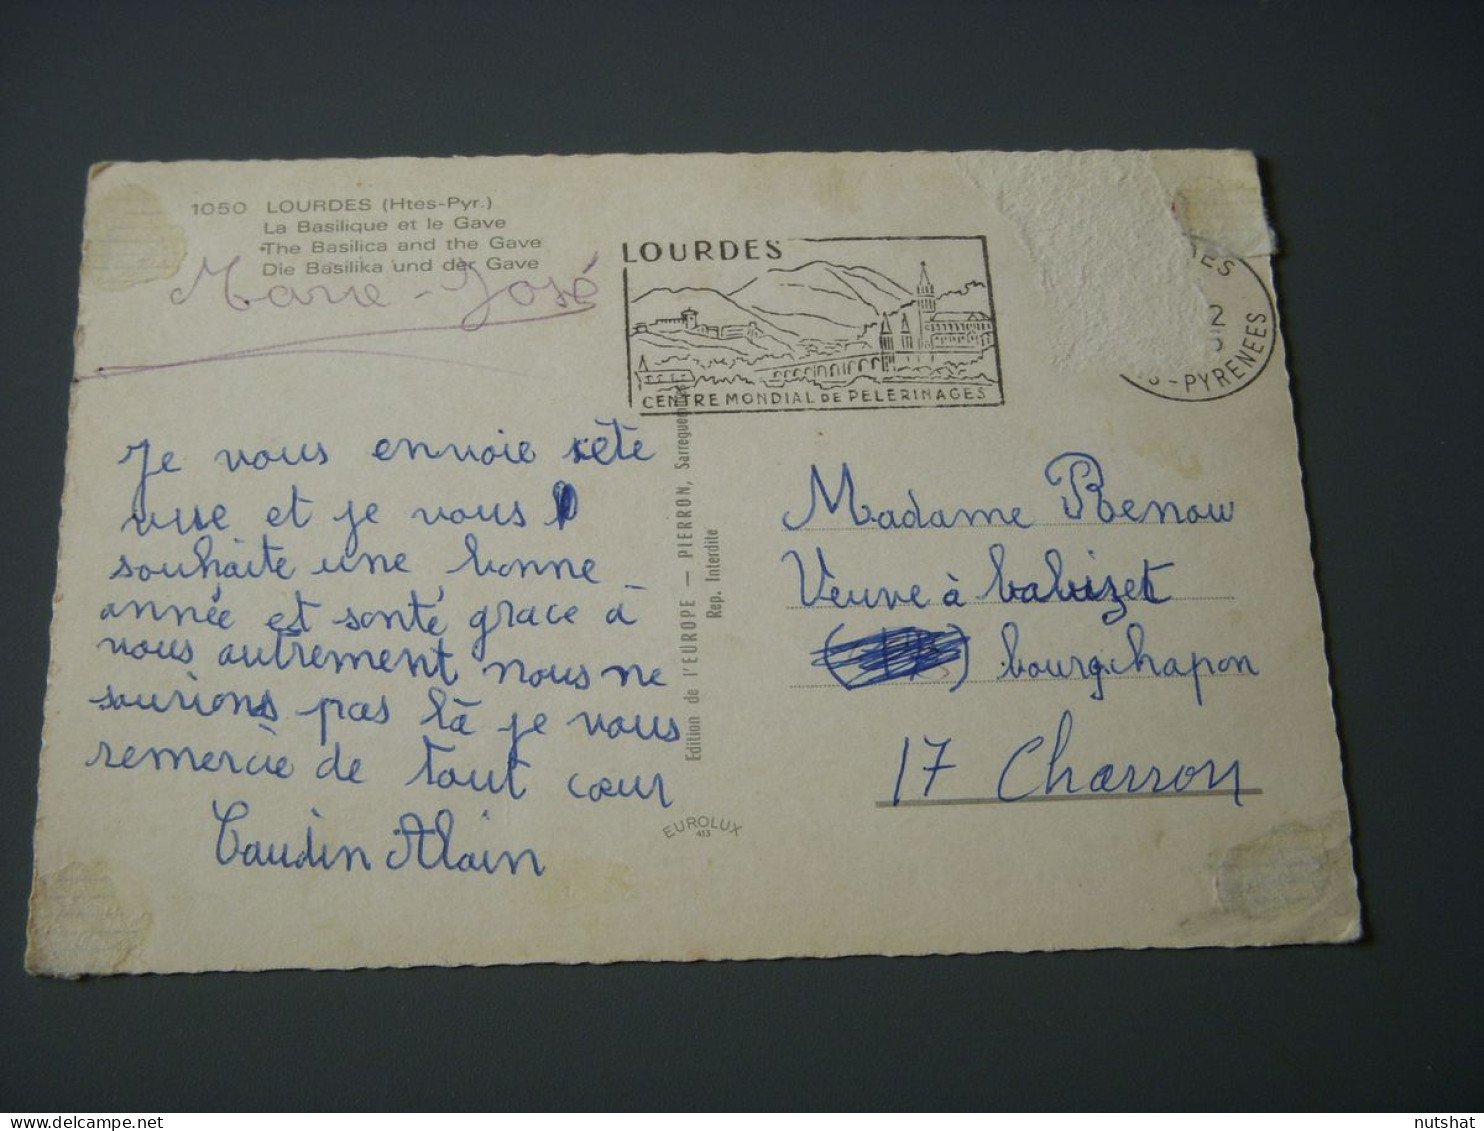 1050 LOURDES (Htes-Pyr.)
La Basilique et le Gave
The Basilica and the Gave
Die Basilika und der Gave
Marie-José
Je vous envoie cète
vue et je vous
souhaite une bonne
année et santé, grace à
vous autrement nous ne
sourions pas là je vous
remercie de tout cœur
Alain
Edition de l'EUROPE — PIERRON, Sarreguemines
Rep. Interdite
EUROLUX
413
LOURDES
CENTRE MONDIAL DE PELERINAGES
ES
2
-PYRENEES
Madame Renou
Veuve à
bourgchapon
17 Charron
nutshat